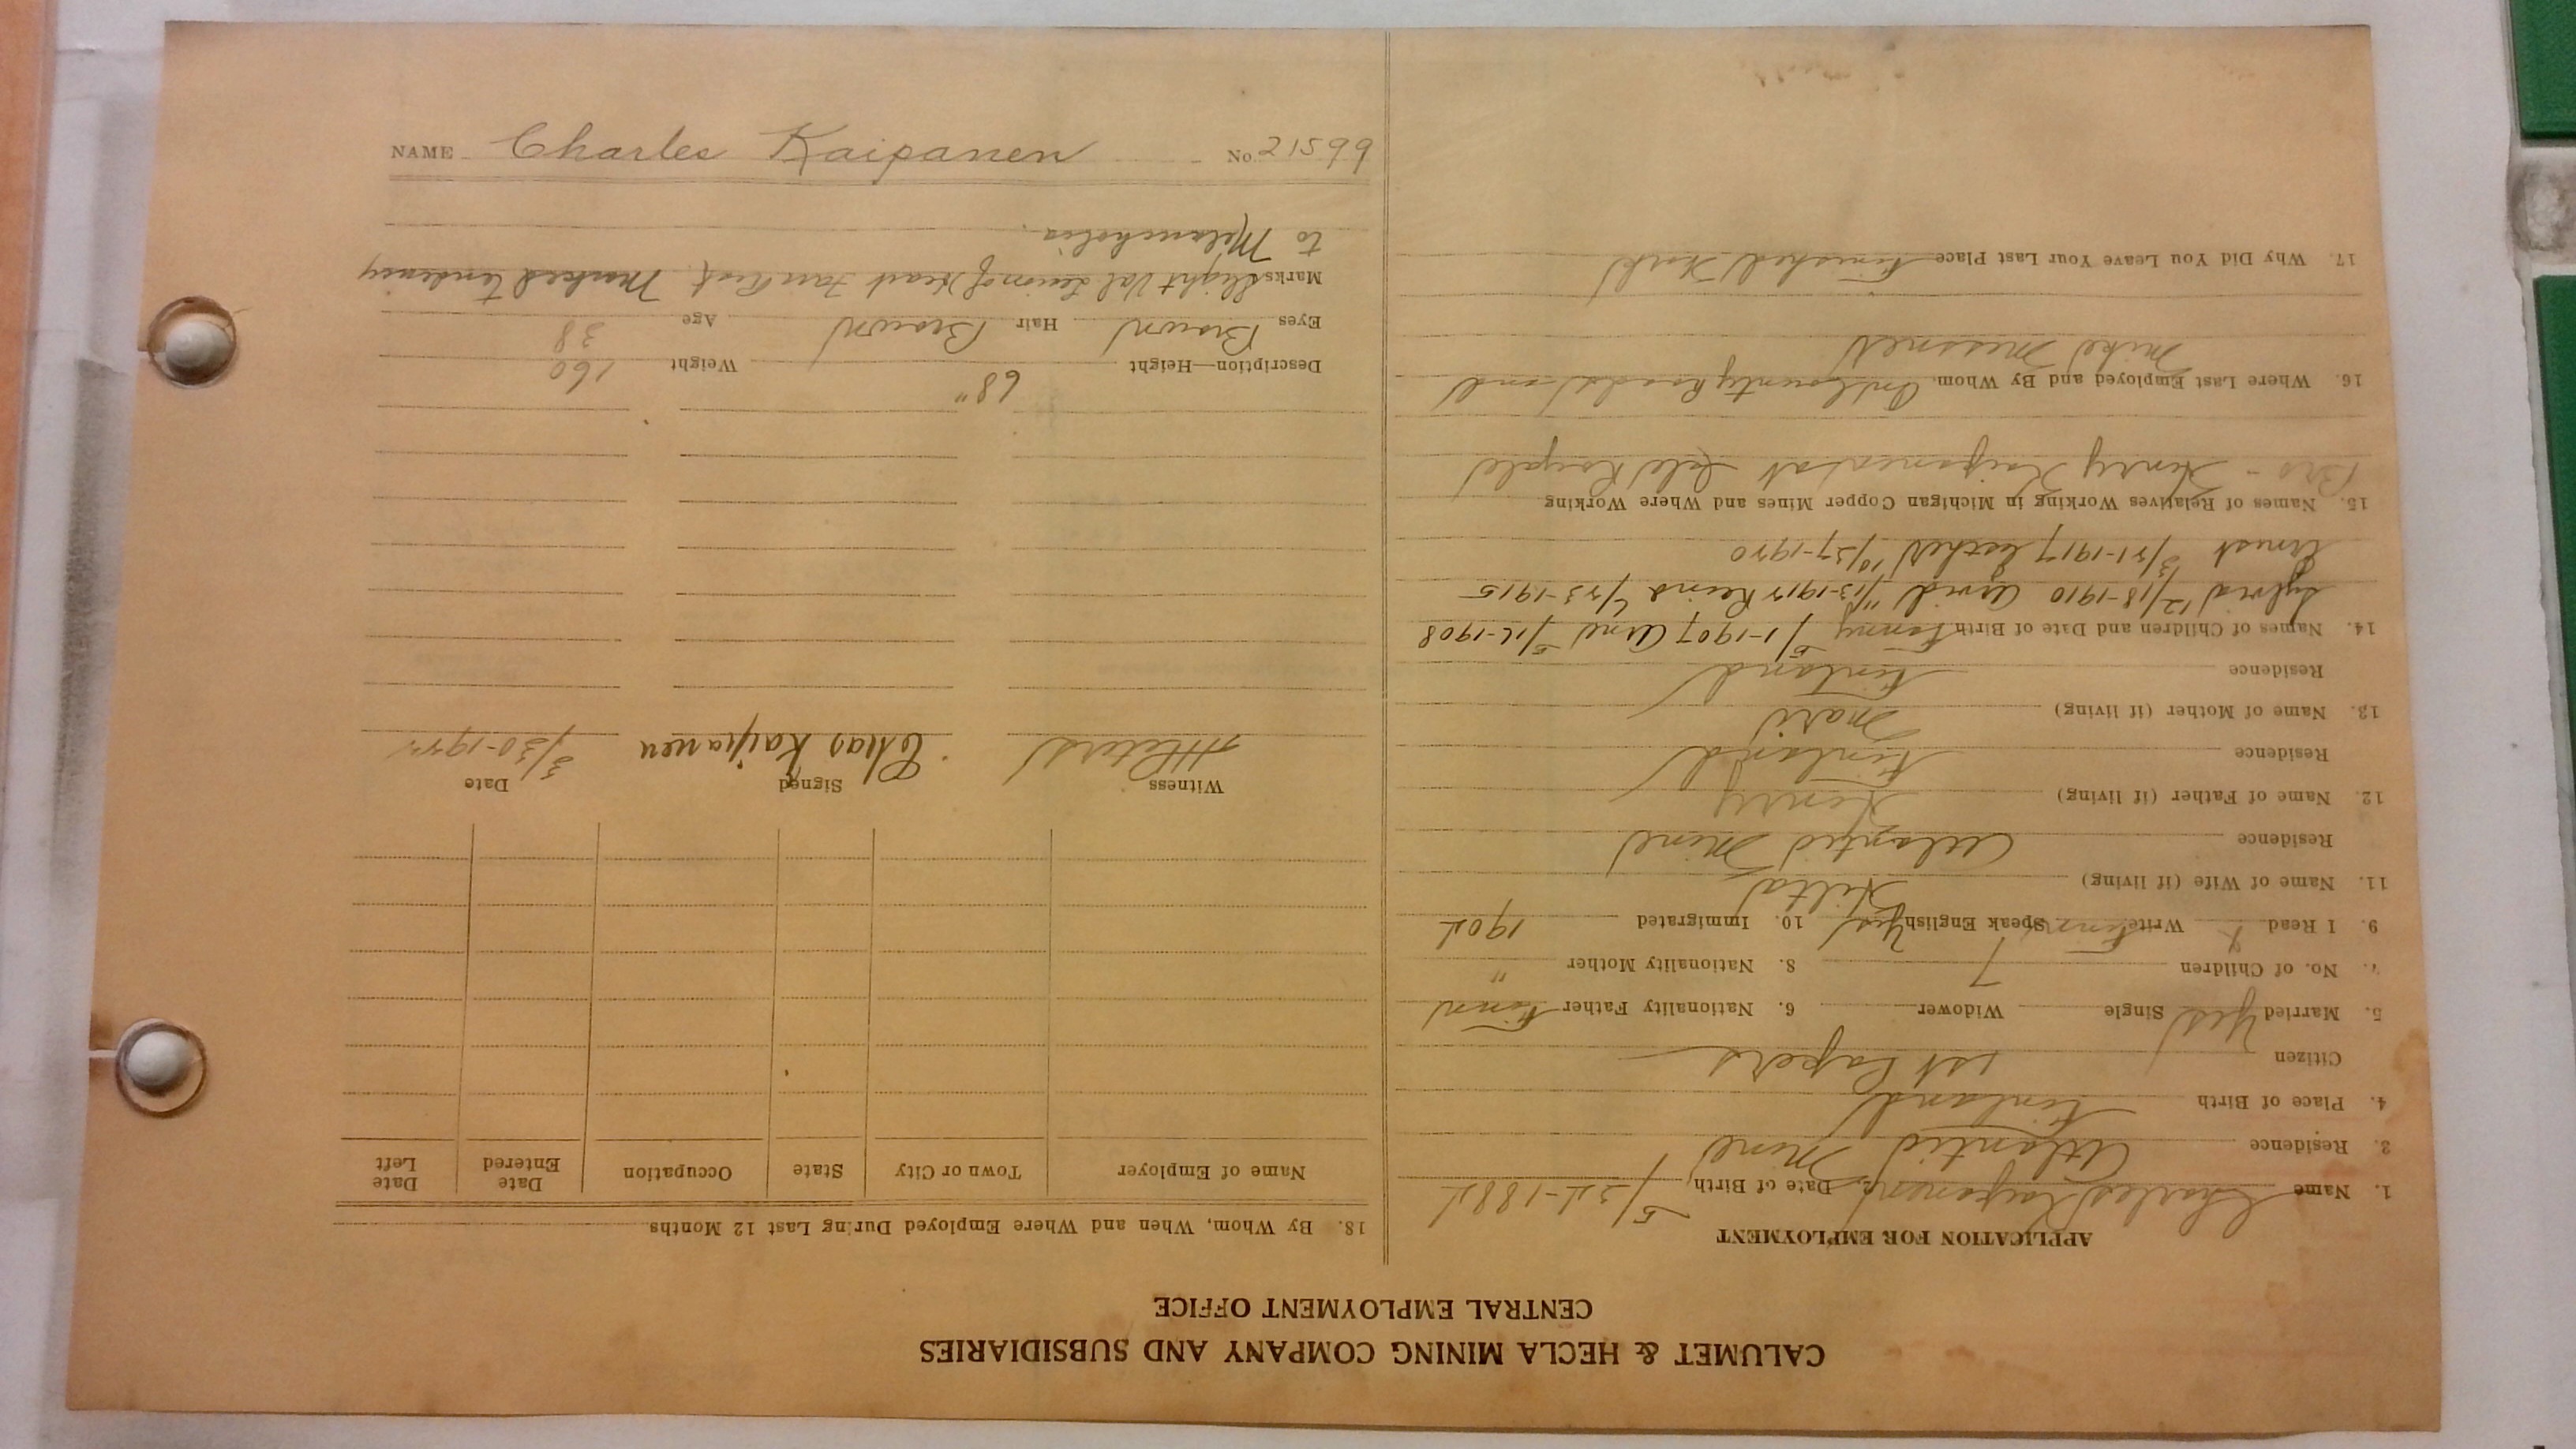 CALUMET & HECLA MINING COMPANY AND SUBSIDIARIES
CENTRAL EMPLOYMENT OFFICE
APPLICATION FOR EMPLOYMENT
1. Name Charles Kaipanen Date of Birth
2. Residence Atlantic Mine
4. Place of Birth Finland
Citizen 1st Papers
5. Married Yes Single Widower 6. Nationality Father Finn
7. No. of Children 7 8. Nationality Mother "
9. I Read Write Finn Speak English Yes 10. Immigrated
11. Name of Wife (if living) Hilta
Residence Atlantic Mine
12. Name of Father (if living) Henry
Residence Finland
13. Name of Mother (if living) Mari
Residence Finland
14. Names of Children and Date of Birth Fanny 5/1-1907
12/18-1910 Arvid 6/23-1915
3/21-1917 10/27-1920
15. Names of Relatives Working in Michigan Copper Mines and Where Working
Bro - Henry Kaipanen at Isle Royale
16. Where Last Employed and By Whom. On County Roads and
Mike Messner
17. Why Did You Leave Your Last Place Finished Work
18. By Whom, When and Where Employed During Last 12 Months
Name of Employer Town or City State Occupation Date Entered Date Left
Witness Signed Date
Peters Chas Kaipanen 3/30-1922
Description—Height 68" Weight 160
Eyes Brown Hair Brown Age 38
Marks Slight Val Lesion of Heart Marked tendency
to Melancholia.
NAME Charles Kaipanen No. 21599